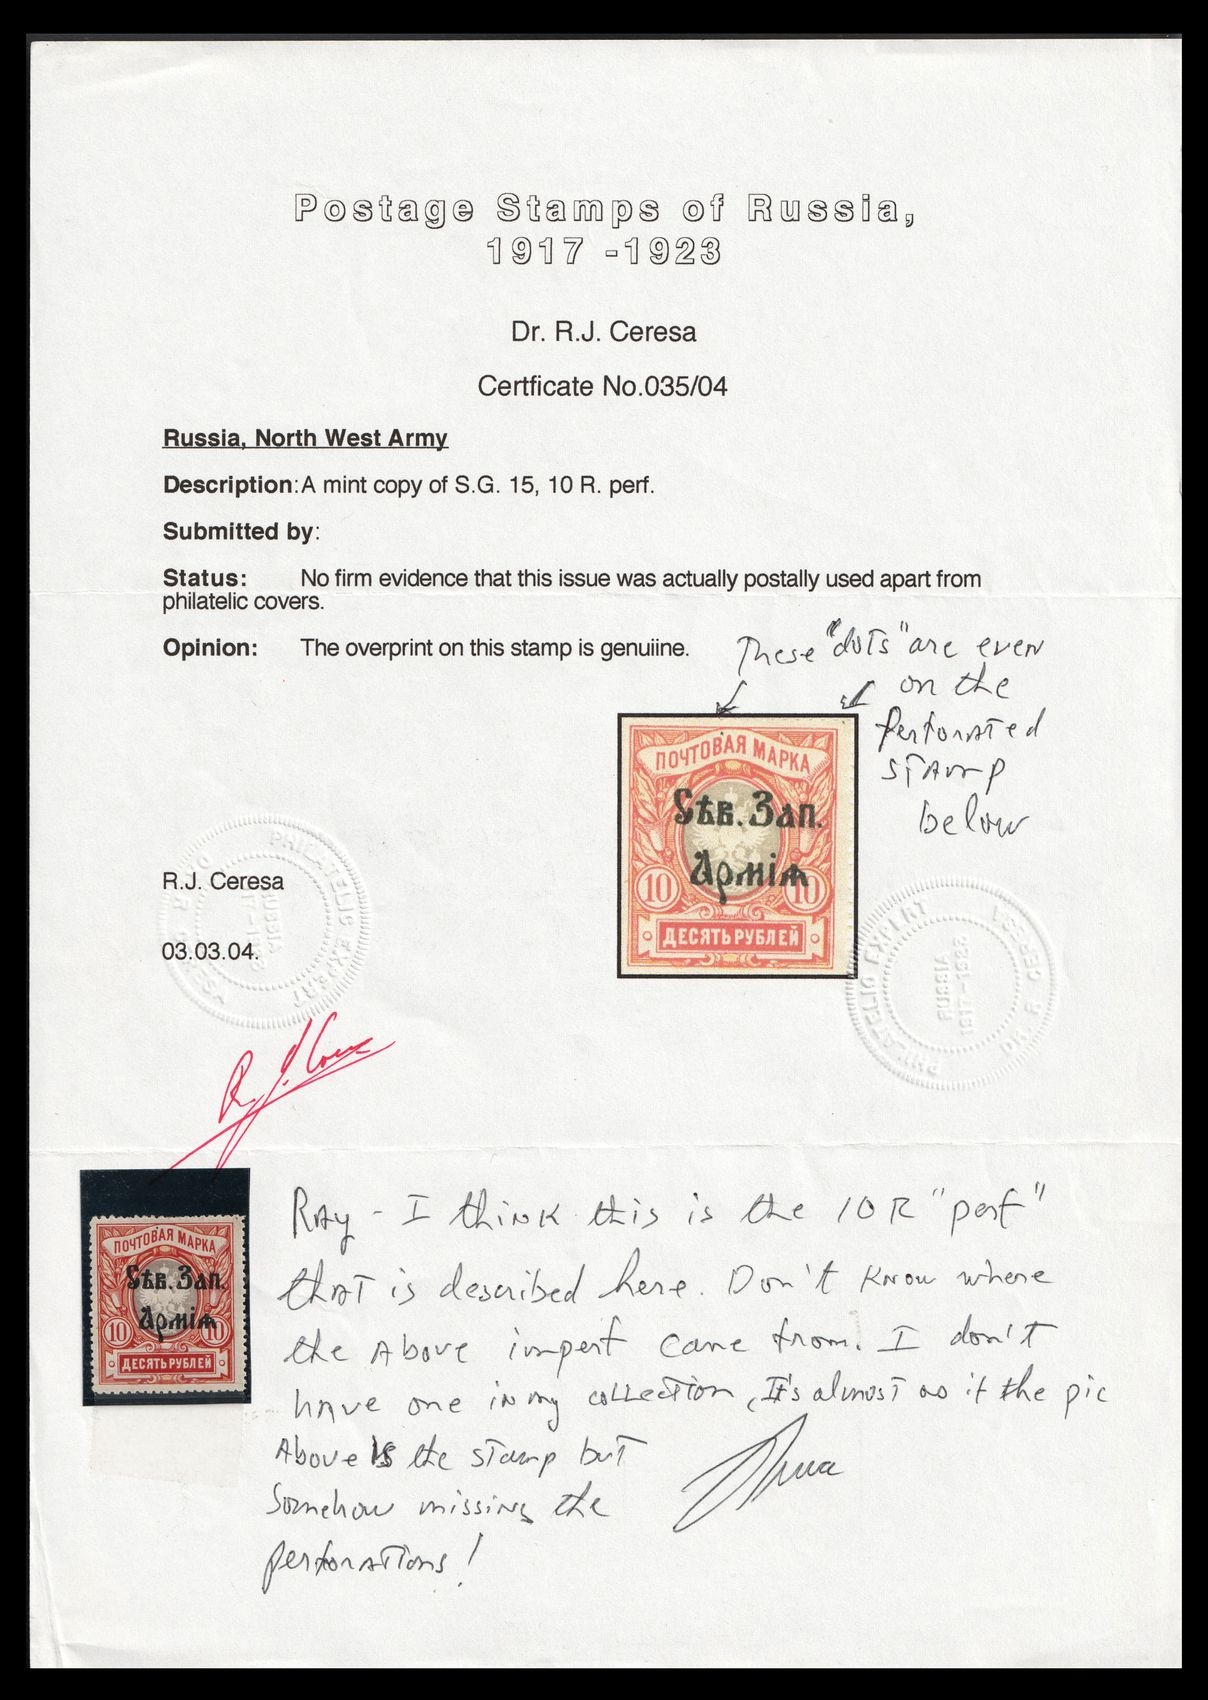 Postage Stamps of Russia,
1917 -1923
Dr. R.J. Ceresa
Certficate No.035/04
Russia, North West Army
Description: A mint copy of S.G. 15, 10 R. perf.
Submitted by:
Status: No firm evidence that this issue was actually postally used apart from
philatelic covers.
Opinion: The overprint on this stamp is genuiine.
These "dots" are even
on the
perforated
stamp
below
ПОЧТОВАЯ МАРКА
Сѣв. Зап.
Армія
10 10
ДЕСЯТЬ РУБЛЕЙ
R.J. Ceresa
03.03.04.
PHILATELIC EXPERT
RUSSIA
PHILATELIC EXPERT
DR R CERESA
RUSSIA
1917-1923
R. J. Ceresa
ПОЧТОВАЯ МАРКА
Сѣв. Зап.
Армія
10 10
ДЕСЯТЬ РУБЛЕЙ
Ray - I think this is the 10 R "perf"
that is described here. Don't know where
the above imperf came from. I don't
have one in my collection, It's almost as if the pic
Above is the stamp but
somehow missing the
perforations!